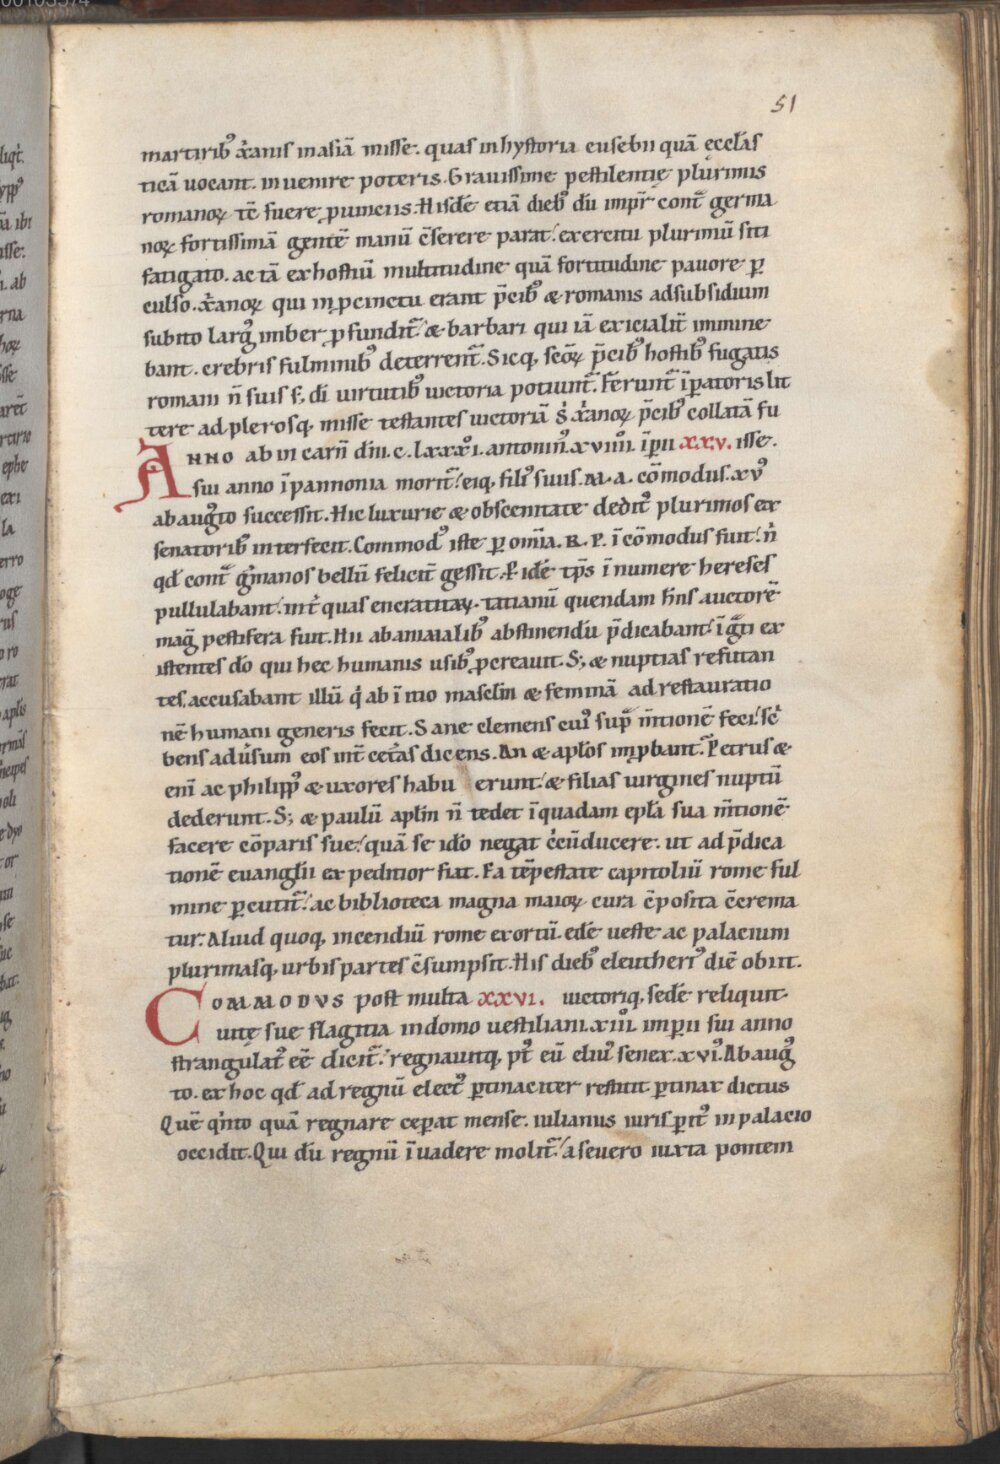 51
martirib᷒ xp̄anis in asiā misse. quas in hystoria eusebii quā ęccl̄as
ticā uocant. inuenire poteris. Grauissime pestilentię plurimis
romanoꝝ tē̄ fuere ꝓuinciis. Hisdē etiā dieb᷒ dū imp̄r cont̄ germa
noꝝ fortissimā gentē manū c̄serere parat. exercitu plurimū siti
fatigato. ac tā ex hostiū multitudine quā fortitudine pauore ꝑ
culso. xp̄anoꝝ qui in ꝓcinctu erant p̄cib᷒ & romanis ad subsidium
subito larg᷒ imber ꝓfundit᷑ & barbari qui iā exicialit̄ immine
bant. crebris fulminib᷒ deterrent᷑. Sicq; sc̄oꝝ p̄cib᷒ hostib᷒ fugatis
romani n̄ suis s; di virtutib᷒ uictoria potiunt᷑. Ferunt᷑ īp̄atoris lit
tere ad plerosq; misse testantes uictoriā ṡ xp̄anoꝝ p̄cib᷒ collatā fu
Anno ab incarn̄ dn̄i. c. lxxxi. antonin᷒ xviiii. īp̄ii xxv. isse.
sui anno ī pannonia morit᷑. eiq; fili᷒ suus. M. a. cōmodus. xv᷒
ab aug᷒to successit. Hic luxurie & obscenitate dedit᷒ plurimos ex
senatorib᷒ interfecit. Commod᷒ iste ꝑ om̄ia. R. P. īcōmodus fuit. n̄
qd̄ cont̄ gͥmanos bellū felicit̄ gessit. Ꝑ idē tp̄s īnumere hereses
pullulabant. int̄ quas encratitaꝝ. tatianū quendam h̄ns auctorē
mag᷒ pestifera fuit. Hii ab animalib᷒ abstinendū p̄dicabant. īgͣti ex
istentes dō qui hec humanis usib᷒ ꝓcreauit. S; & nuptias refutan
tes, accusabant illū qͥ ab initio masclīn & feminā ad restauratio
nē humani generis fecit. Sane clemens cui᷒ sup̄ m̄tionē feci. scͥ
bens adūsum eos int̄ cet̄as dicens. An & apl̄os inꝓbant. Petrus &
eni ac philipp᷒ & uxores habu erunt. & filias uirgines nuptū
dederunt. S; & paulū apl̄m n̄ tedet ī quadam epl̄a sua m̄tionē
facere cōparis sue. quā se idō negat c̄cūducere. ut ad p̄dica
tionē euanglii expeditior fiat. Ea tēpestate capitoliū rome ful
mine ꝑcutit᷑. ac biblioteca magna maioꝝ cura c̄posita c̄crema
tur. Aliud quoq; incendiū rome exortū. edē ueste ac palacium
plurimasq; urbis partes c̄sumpsit. His dieb᷒ eleutheri᷒ diē obiit.
Commodvs post multa xxvi. uictoriq; sedē reliquit.
uitę sue flagitia in domo uestiliani. xiii. imperii sui anno
strangulat᷒ eē dicit᷑. regnauitq; pt᷒ eū eliu᷒ senex. xvi᷒. Ab aug᷒
to. ex hoc qd̄ ad regnū elect᷒ ꝑtinaciter restitit ꝑtinax dictus
Quē qͥnto quā regnare ceperat mense. iulianus iuris ꝑit᷒ in palacio
occidit. Qui dū regnū īuadere molit᷑. a seuero iuxta pontem